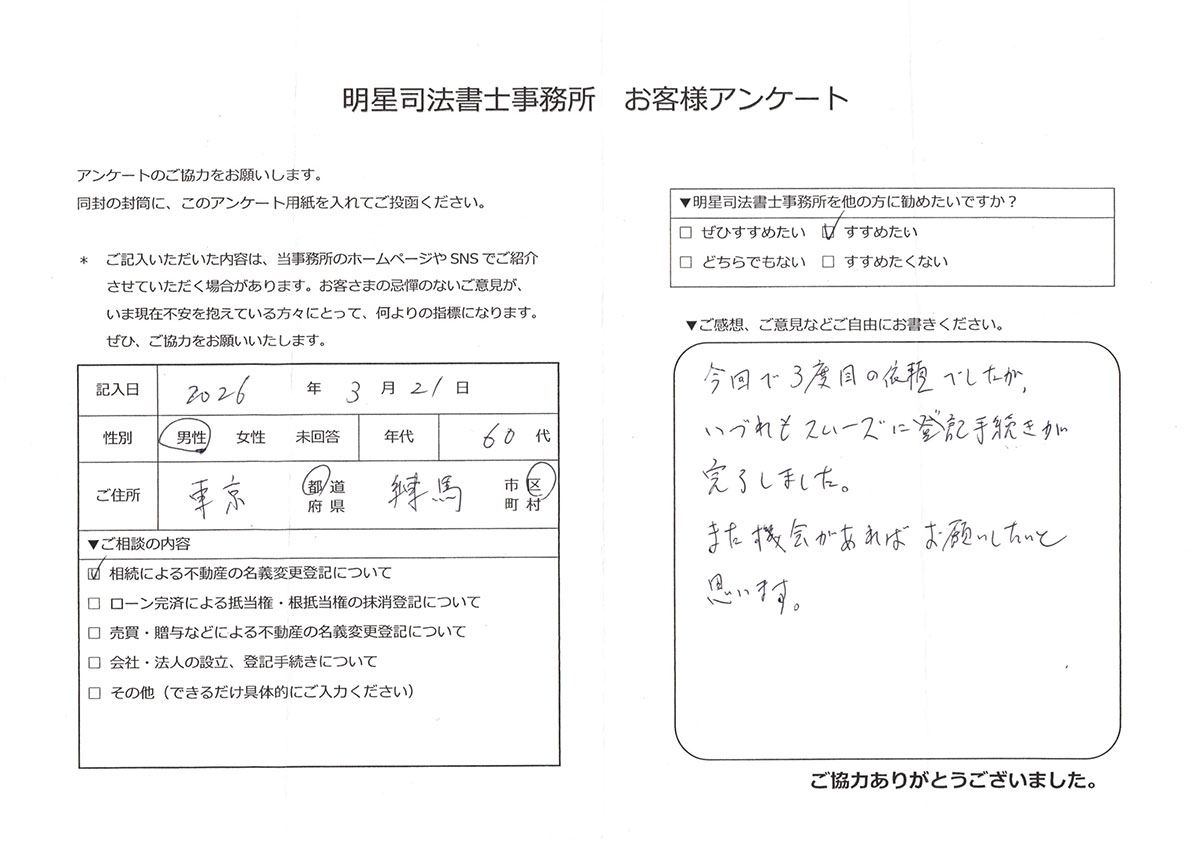 明星司法書士事務所　お客様アンケート
アンケートのご協力をお願いします。
同封の封筒に、このアンケート用紙を入れてご投函ください。
＊　ご記入いただいた内容は、当事務所のホームページやSNSでご紹介
させていただく場合があります。お客さまの忌憚のないご意見が、
いま現在不安を抱えている方々にとって、何よりの指標になります。
ぜひ、ご協力をお願いいたします。
記入日　2026　年　3　月　21　日
性別　男性　女性　未回答　年代　60　代
ご住所　東京　都道　練馬　市区
府県　町村
▼ご相談の内容
☑ 相続による不動産の名義変更登記について
□ ローン完済による抵当権・根抵当権の抹消登記について
□ 売買・贈与などによる不動産の名義変更登記について
□ 会社・法人の設立、登記手続きについて
□ その他（できるだけ具体的にご入力ください）
▼明星司法書士事務所を他の方に勧めたいですか？
□ ぜひすすめたい　☑ すすめたい
□ どちらでもない　□ すすめたくない
▼ご感想、ご意見などご自由にお書きください。
今回で3度目の依頼でしたが、
いづれもスムーズに登記手続きが
完了しました。
また機会があればお願いしたいと
思います。
ご協力ありがとうございました。